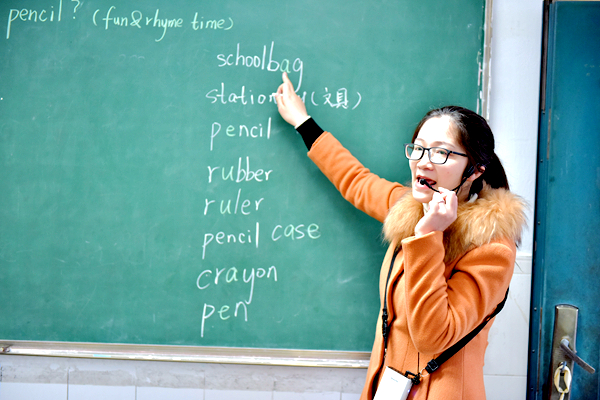 pencil? (fun&rhyme time)
schoolbag
(文具)
pencil
rubber
ruler
pencil case
crayon
pen